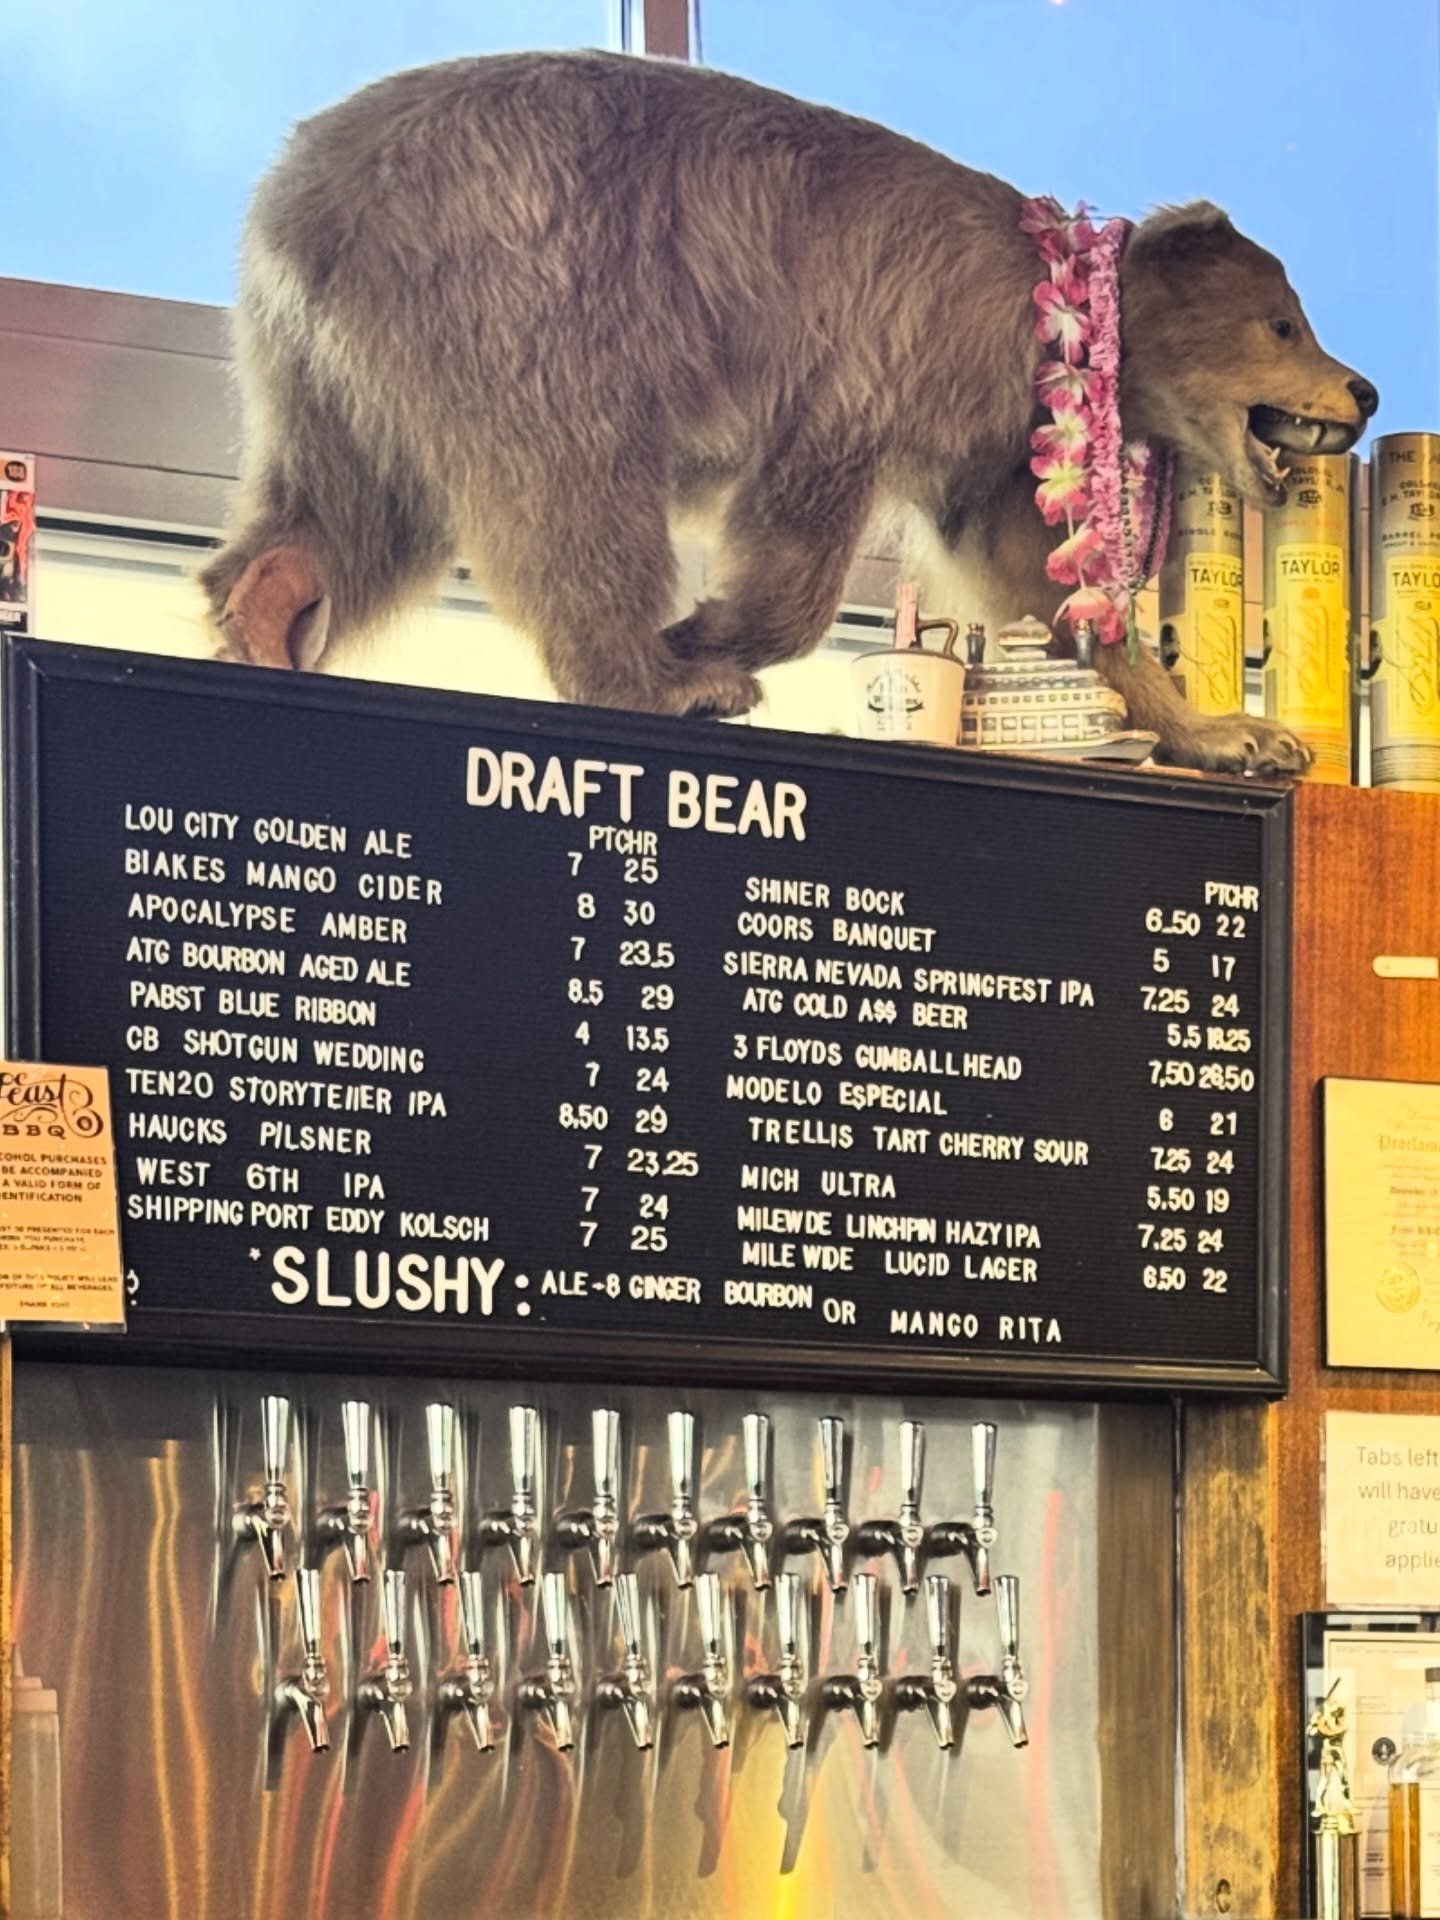 DRAFT BEAR
PTCHR
LOU CITY GOLDEN ALE 7 25
BIAKES MANGO CIDER 8 30
APOCALYPSE AMBER 7 23.5
ATG BOURBON AGED ALE 8.5 29
PABST BLUE RIBBON 4 13.5
CB SHOTGUN WEDDING 7 24
TEN20 STORYTEIIER IPA 8.50 29
HAUCKS PILSNER 7 23.25
WEST 6TH IPA 7 24
SHIPPING PORT EDDY KOLSCH 7 25
PTCHR
SHINER BOCK 6.50 22
COORS BANQUET 5 17
SIERRA NEVADA SPRINGFEST IPA 7.25 24
ATG COLD A$$ BEER 5.5 18.25
3 FLOYDS GUMBALLHEAD 7,50 26.50
MODELO ESPECIAL 6 21
TRELLIS TART CHERRY SOUR 7.25 24
MICH ULTRA 5.50 19
MILEWDE LINCHPIN HAZY IPA 7.25 24
MILE WDE LUCID LAGER 6.50 22
*SLUSHY: ALE-8 GINGER BOURBON OR MANGO RITA
Feast
BBQ
COHOL PURCHASES
BE ACCOMPANIED
A VALID FORM OF
ENTIFICATION
TAYLOR
TAYLOR
TAYLO
THE
SINGLE
BARREL
Proclam
Tabs left
will have
gratu
applie